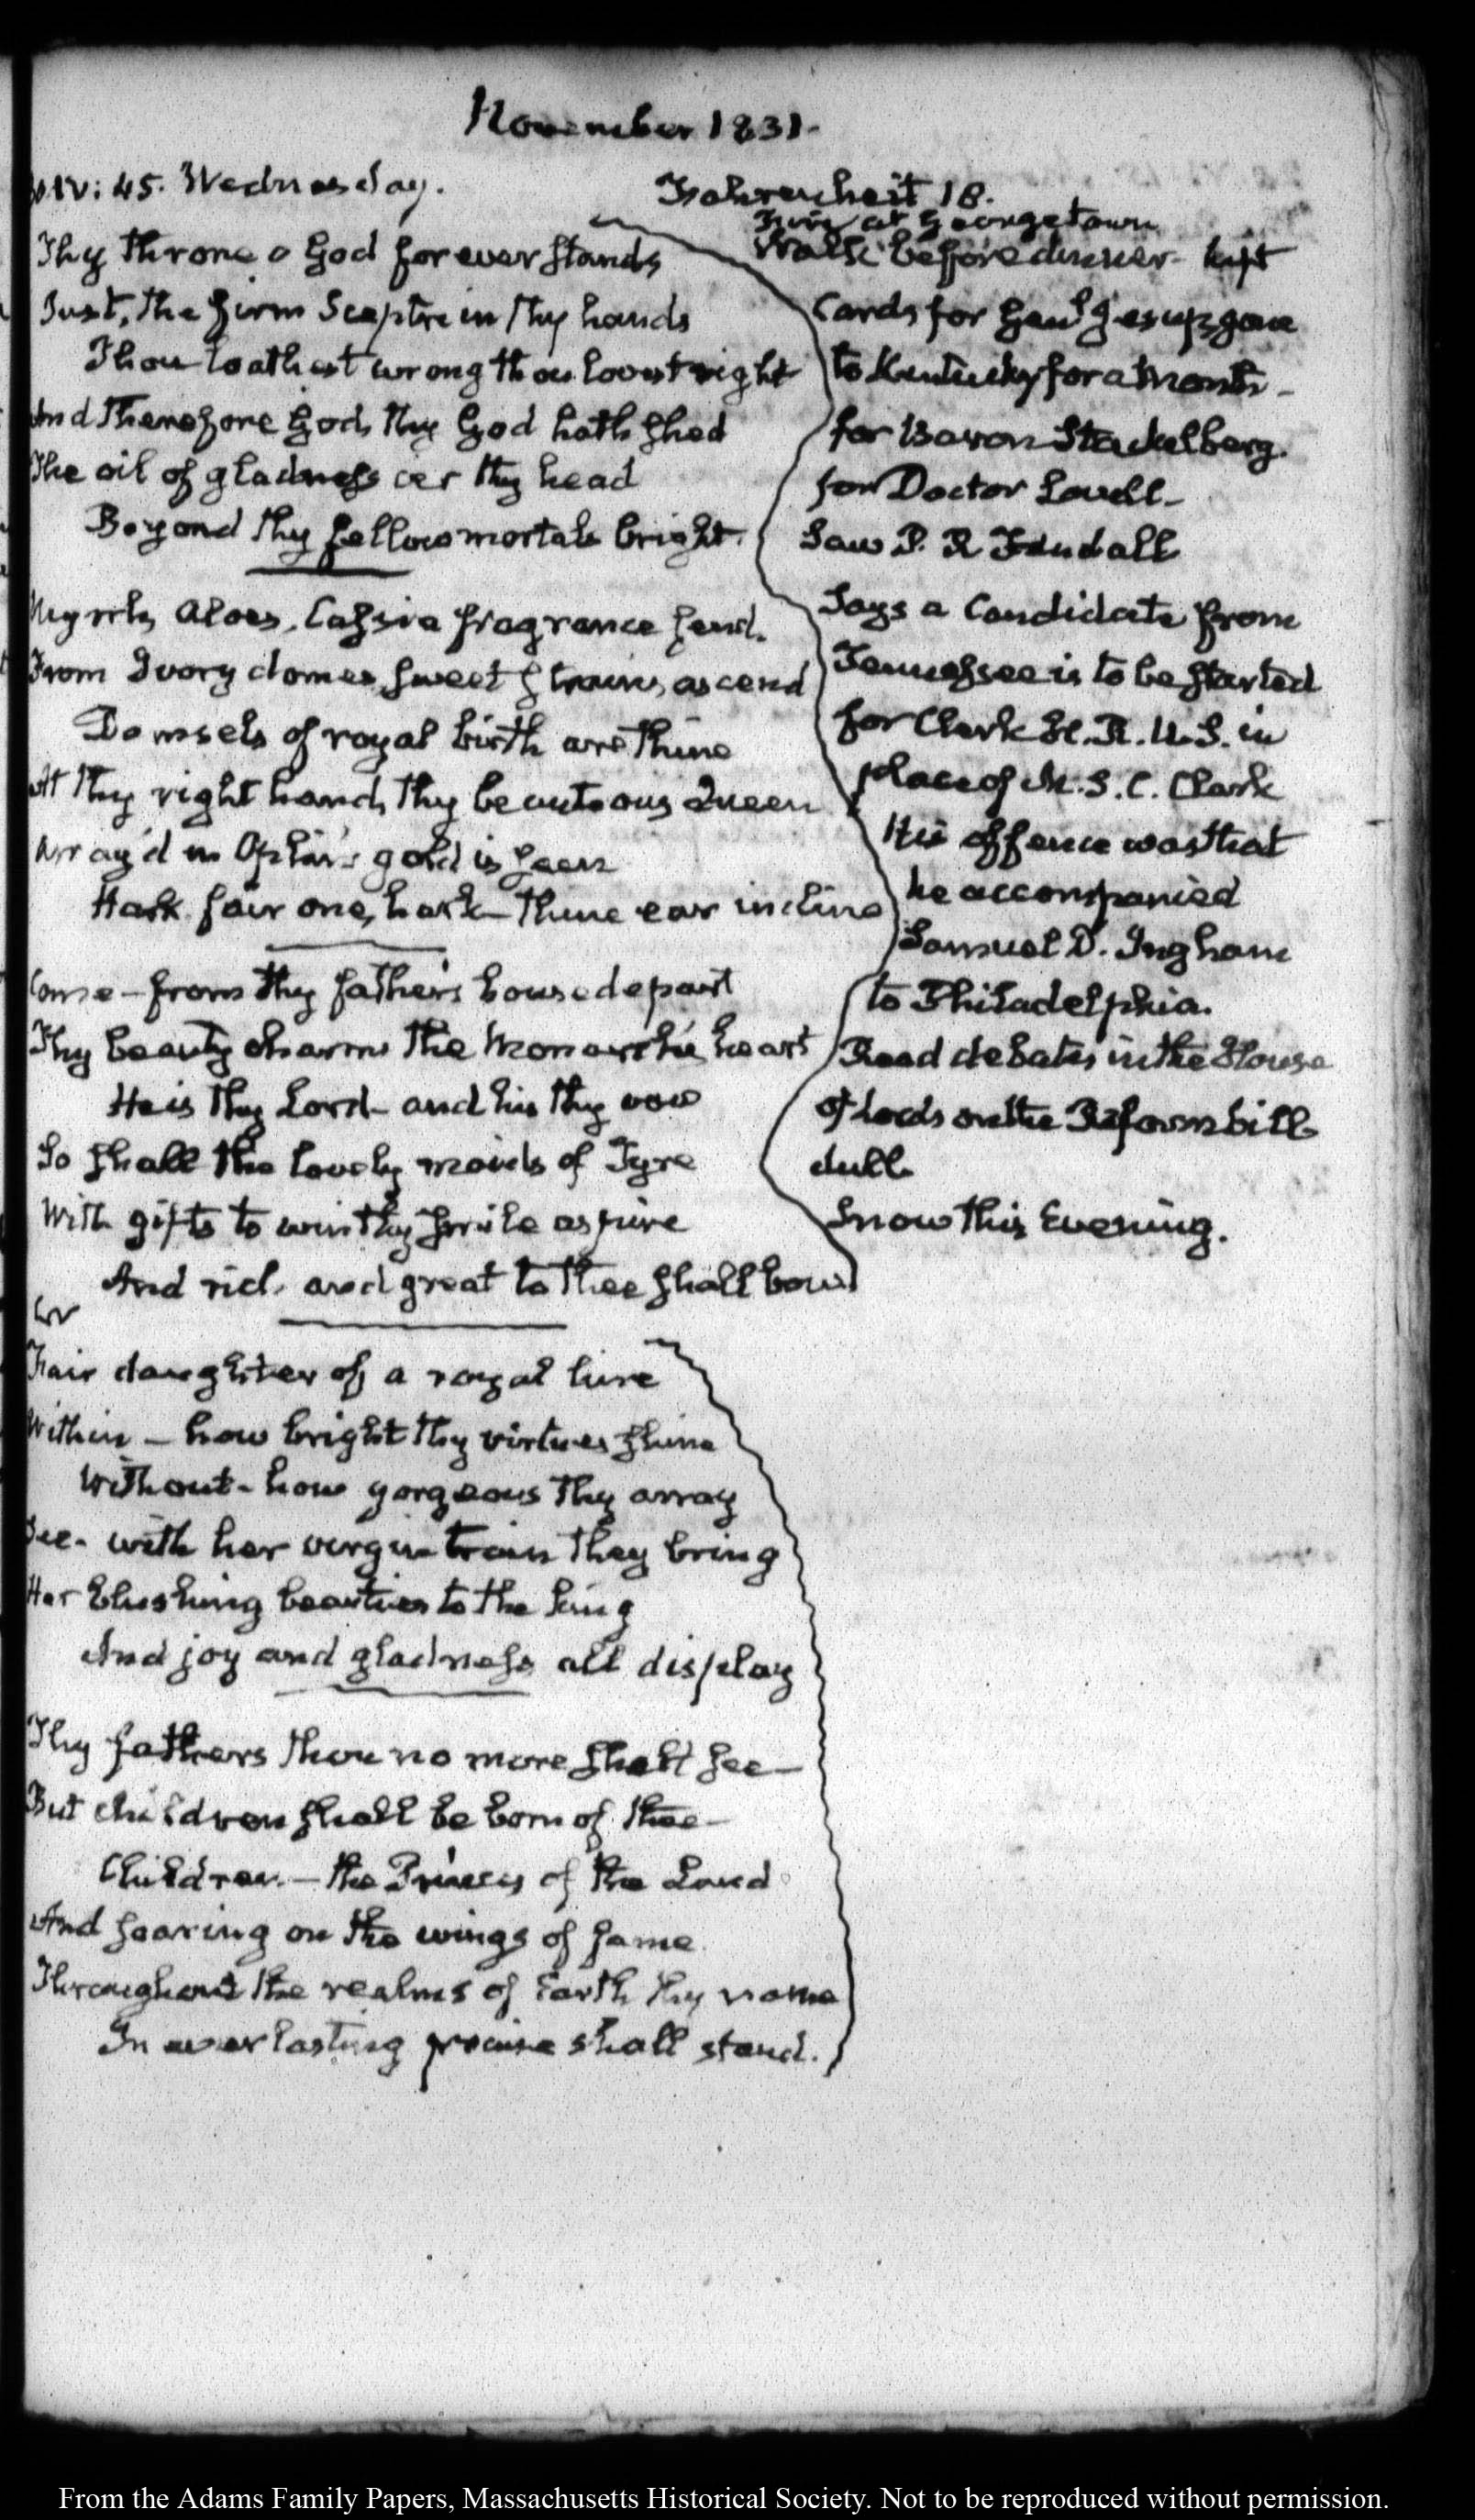 November 1831.
XXIV: 45. Wednesday.
Thy throne o God forever stands
Just, the firm Sceptre in thy hands
Thou loathest wrong thou lovest right
And therefore God, thy God hath shed
The oil of gladness oer thy head
Beyond thy fellow mortals bright.
Myrrh, Aloes, Cassia fragrance send.
From Ivory domes, sweet strains, ascend
Damsels of royal birth are thine
At thy right hand, thy beauteous Queen
Array'd in Ophir's gold is seen
Hark fair one, hark - thine ear incline
Come - from thy father's house depart
Thy beauty charms the Monarch's heart
He is thy Lord - and his thy vow
So shall the lovely maids of Tyre
With gifts to win thy smile aspire
And rich and great to thee shall bow
Fair daughter of a royal line
Within - how bright thy virtues shine
Without - how gorgeous thy array
See - with her virgin train they bring
Her blushing beauties to the king
And joy and gladness all display
Thy fathers thou no more shalt see -
But children shall be born of thee -
Children - the Princes of the Land
And soaring on the wings of fame
Throughout the realms of Earth thy name
In everlasting praise shall stand.
Fahrenheit 18.
Fire at Georgetown
Walk before dinner - left
Cards for Genl. Jesup, gone
to Kentucky for a Month -
for Baron Stackelberg.
for Doctor Lovell -
Saw P. R Fendall
Says a Candidate from
Tennessee is to be started
for Clerk H. R. U.S. in
place of M. S. C. Clark
His offence was that
he accompanied
Samuel D. Ingham
to Philadelphia.
Read debates in the House
of Lords on the Reform bill
dull
Snow this Evening.
From the Adams Family Papers, Massachusetts Historical Society. Not to be reproduced without permission.